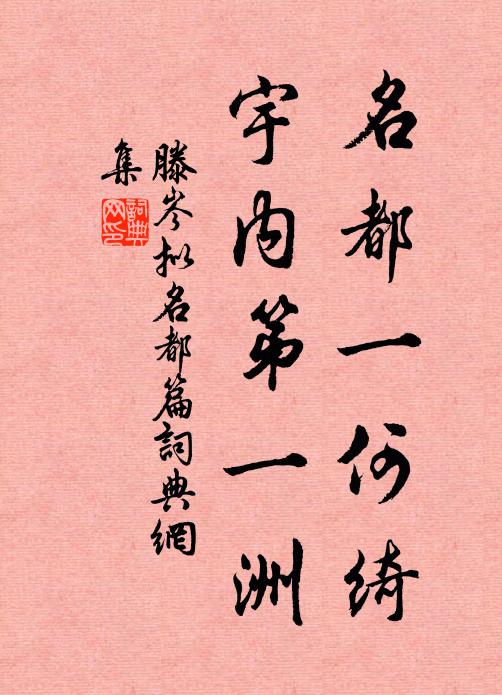 名都一何綺
宇内第一洲
滕岑拟名都篇詞典網
集
詞典
网印